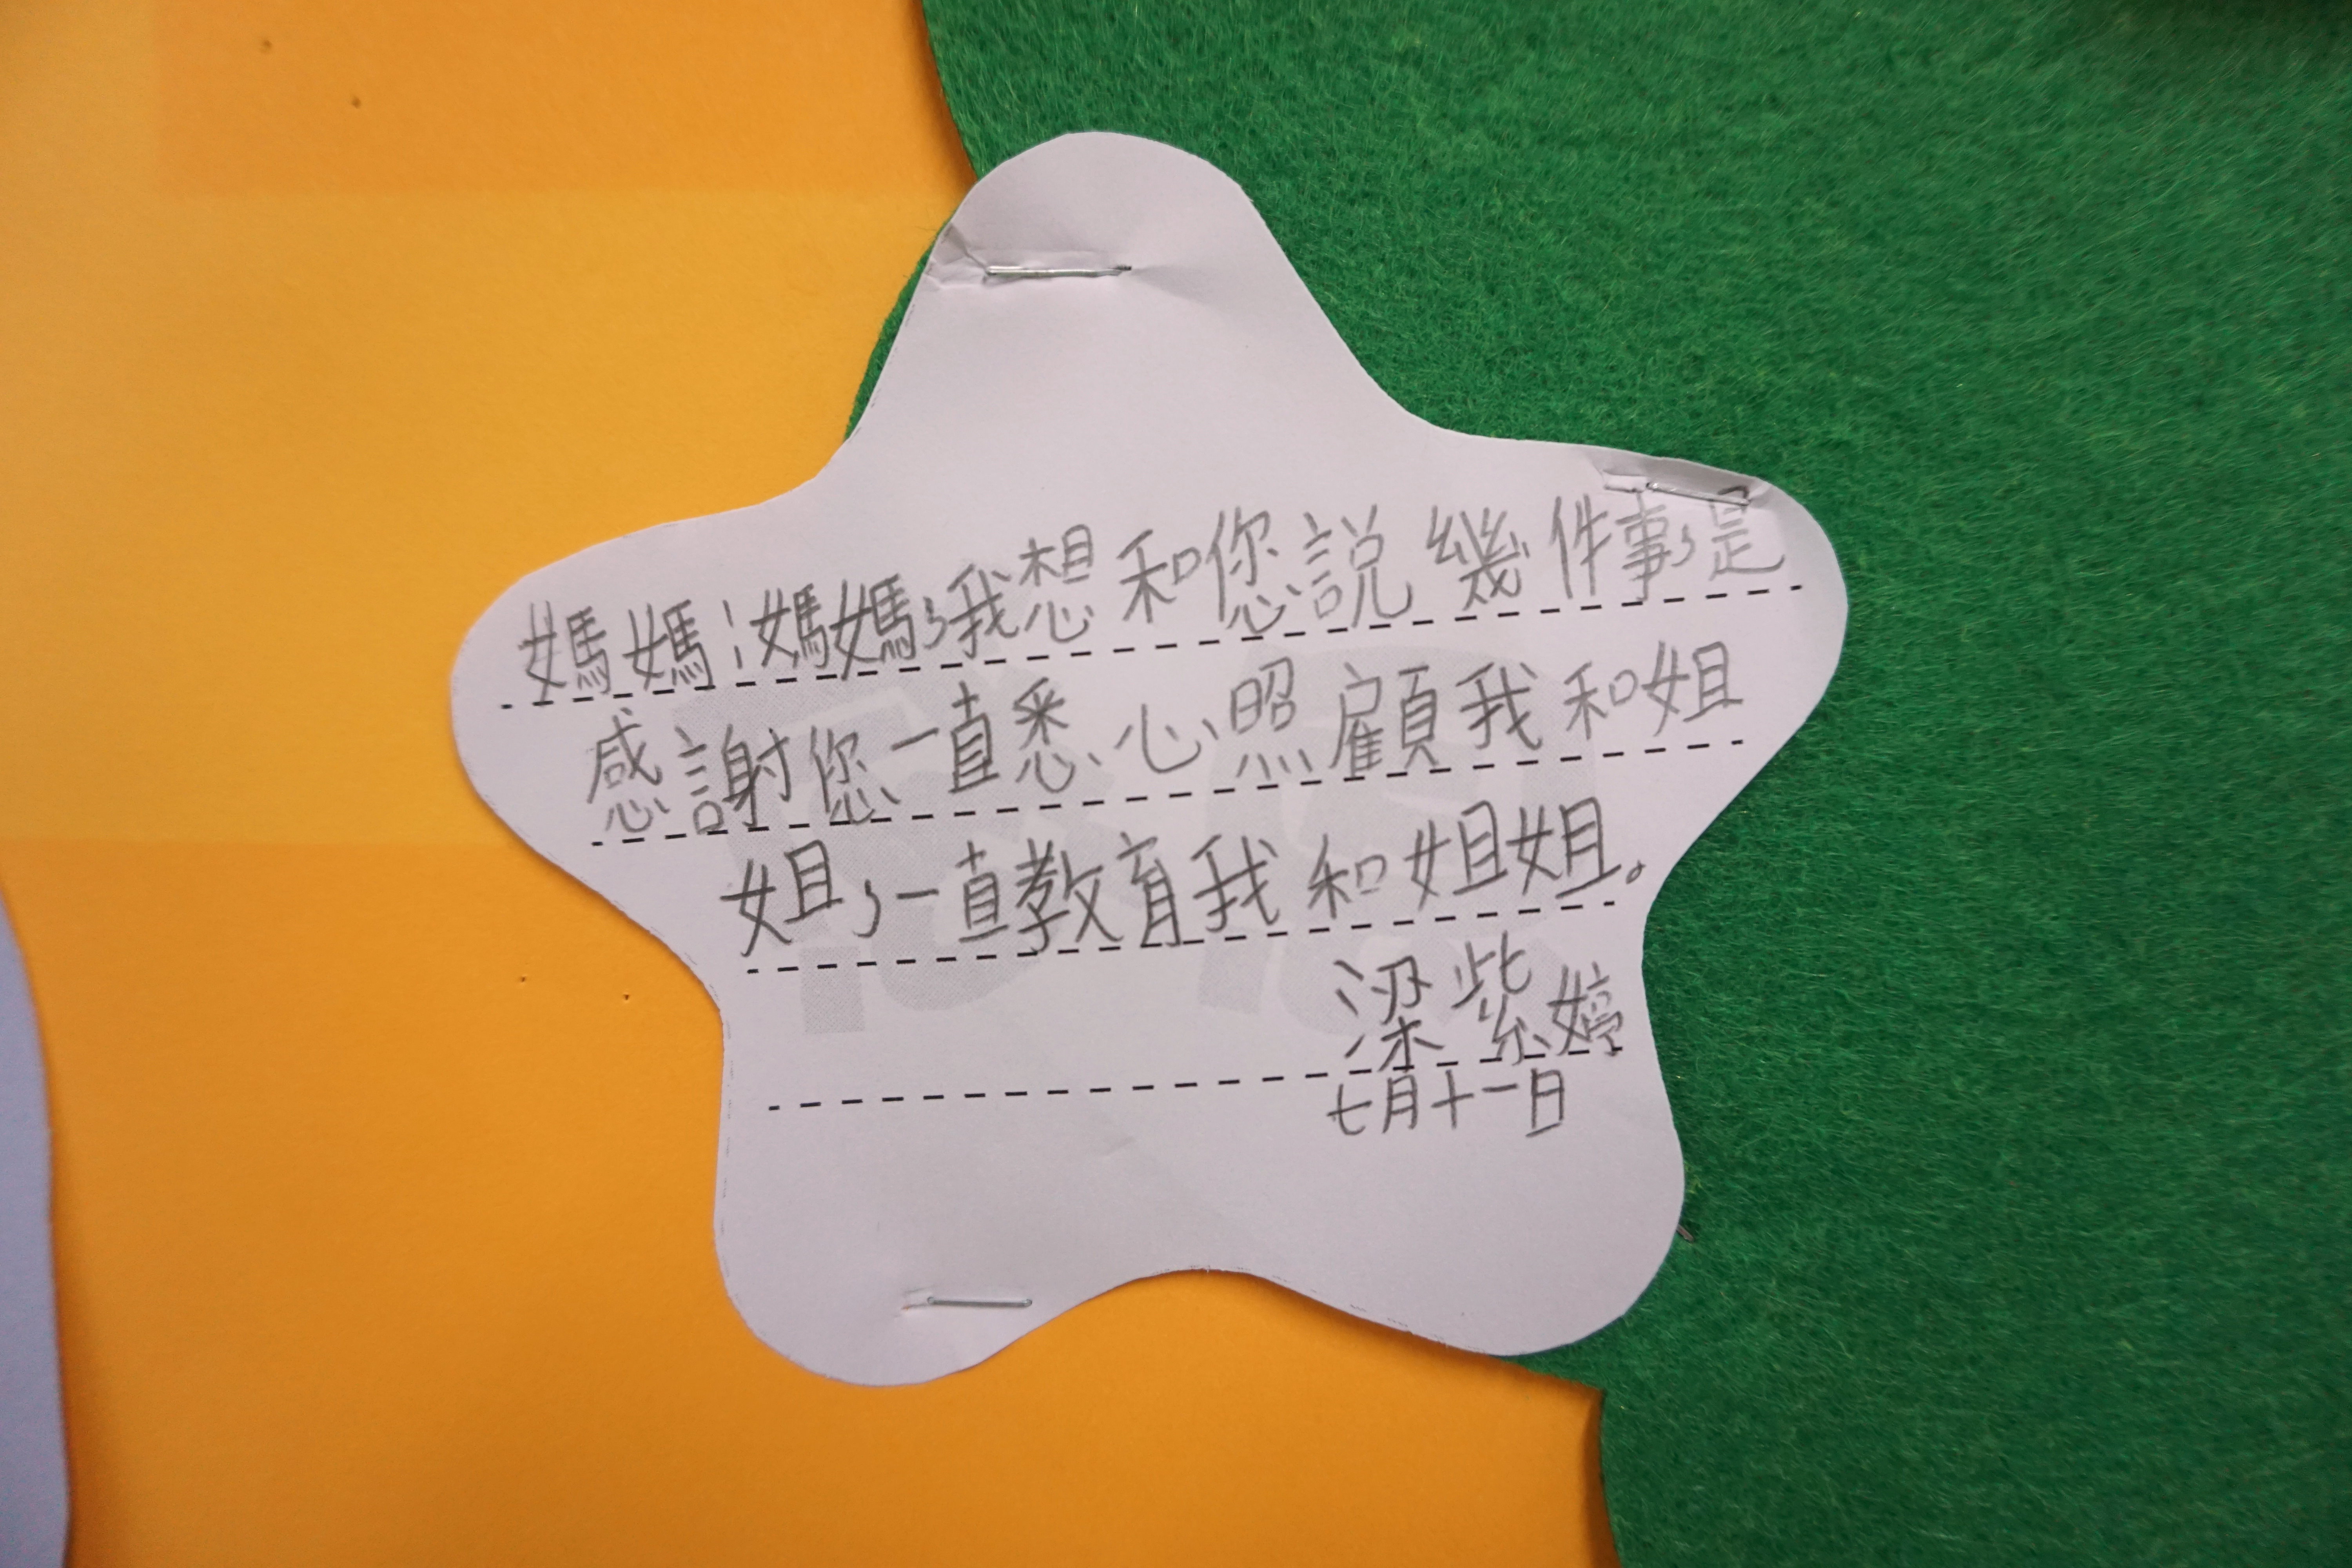 媽媽：媽媽，我想和您說幾件事，是
感謝您一直悉心照顧我和姐
姐，一直教育我和姐姐。
梁紫婷
七月十一日